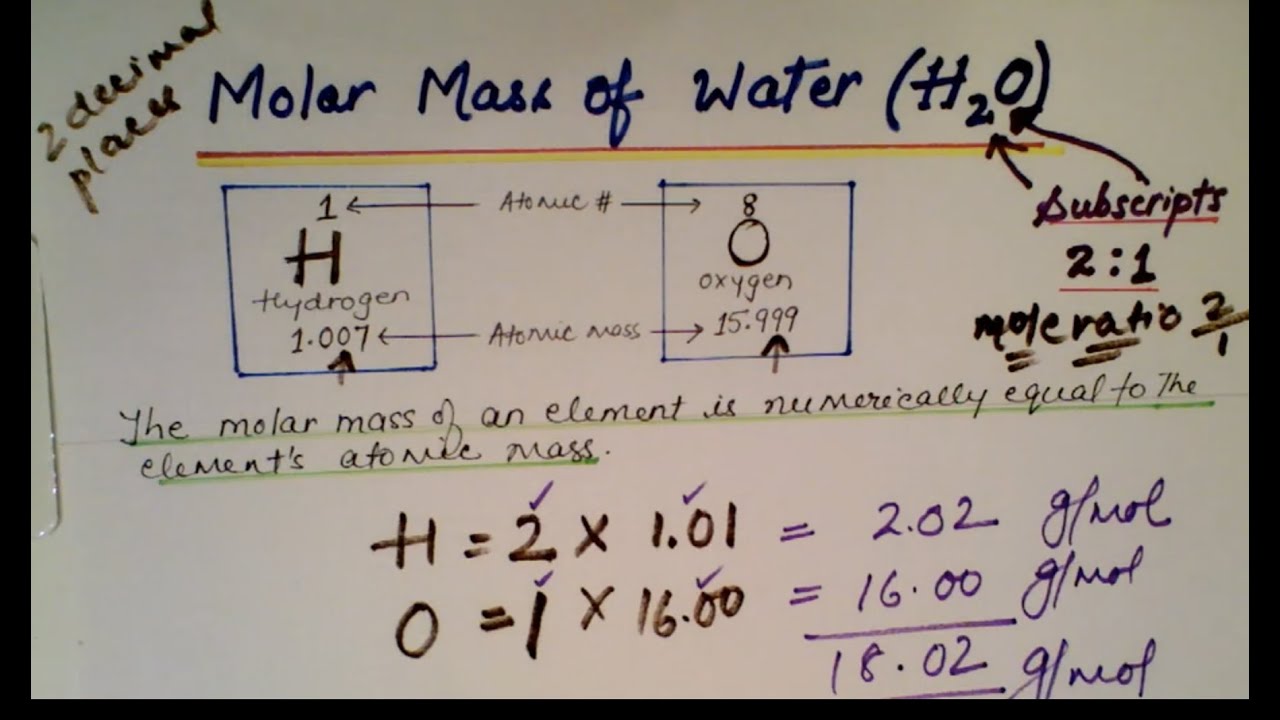 2 decimal
places
Molar Mass of Water (H₂O)
Subscripts
2 : 1
mole ratio 2/1
1 Atomic # 8
H O
Hydrogen oxygen
1.007 Atomic mass 15.999
The molar mass of an element is numerically equal to the
element's atomic mass.
H = 2 × 1.01 = 2.02 g/mol
O = 1 × 16.00 = 16.00 g/mol
18.02 g/mol